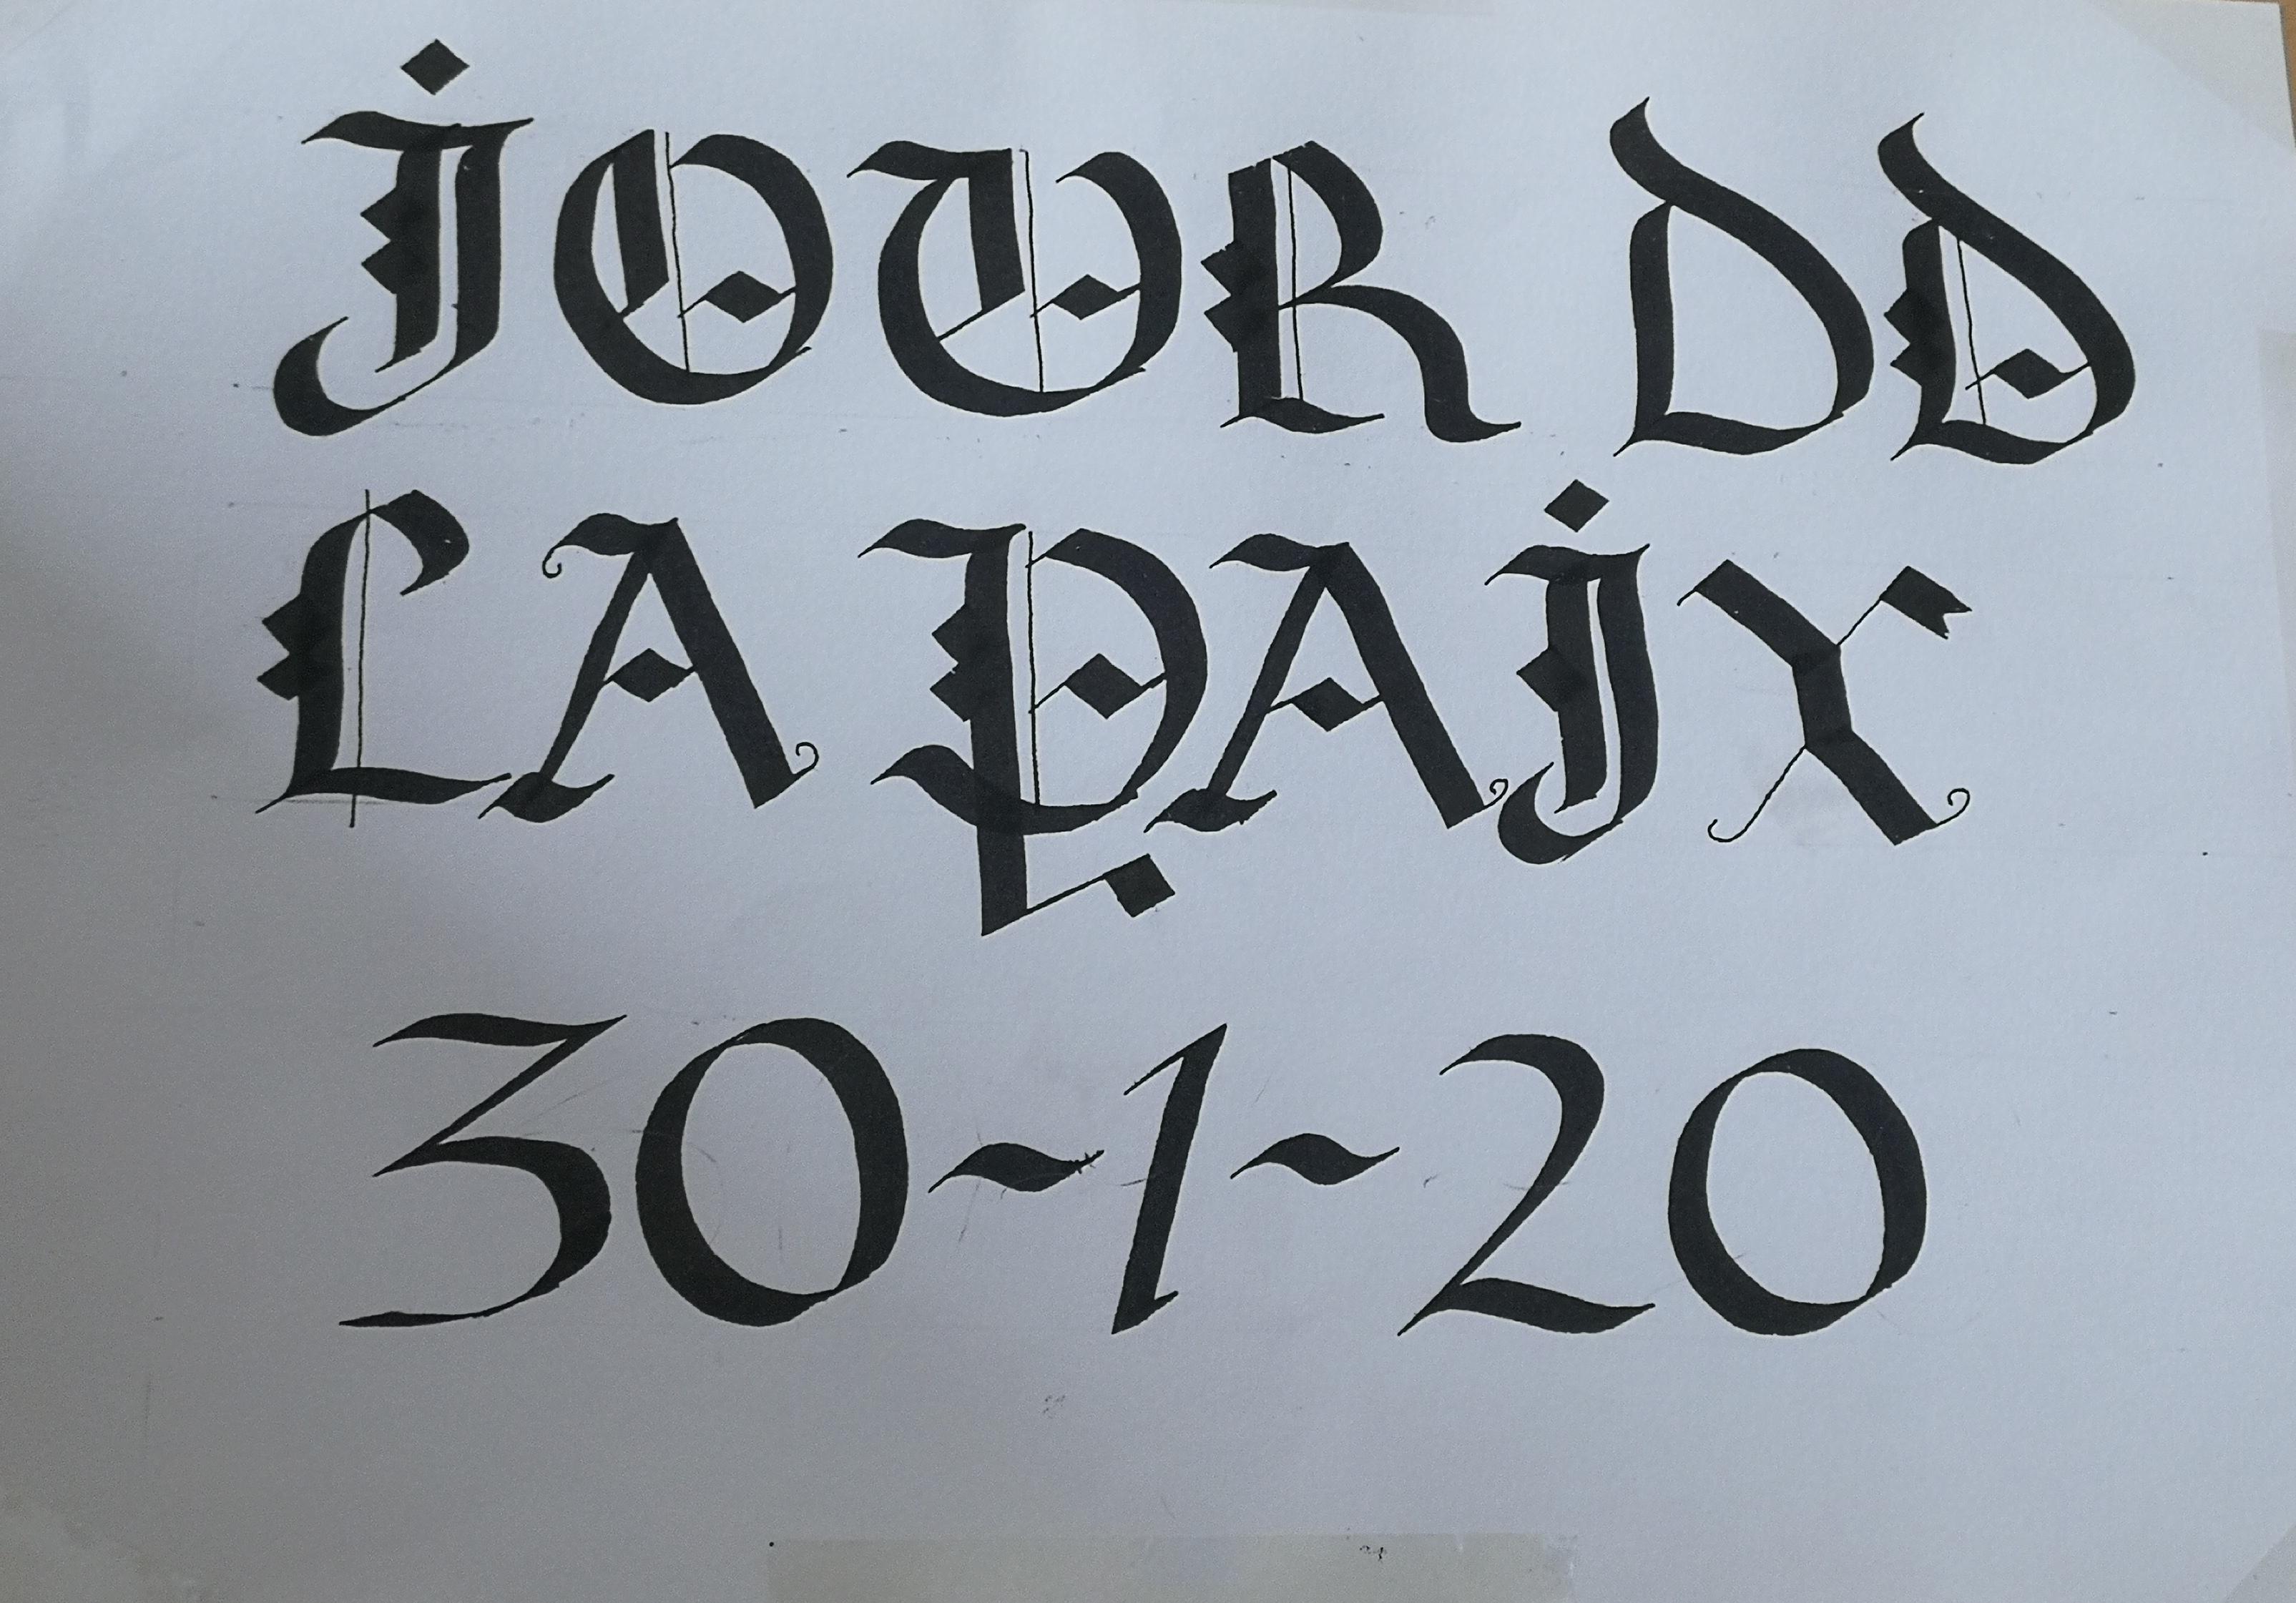 JOUR DD
LA PAIX
30-1-20